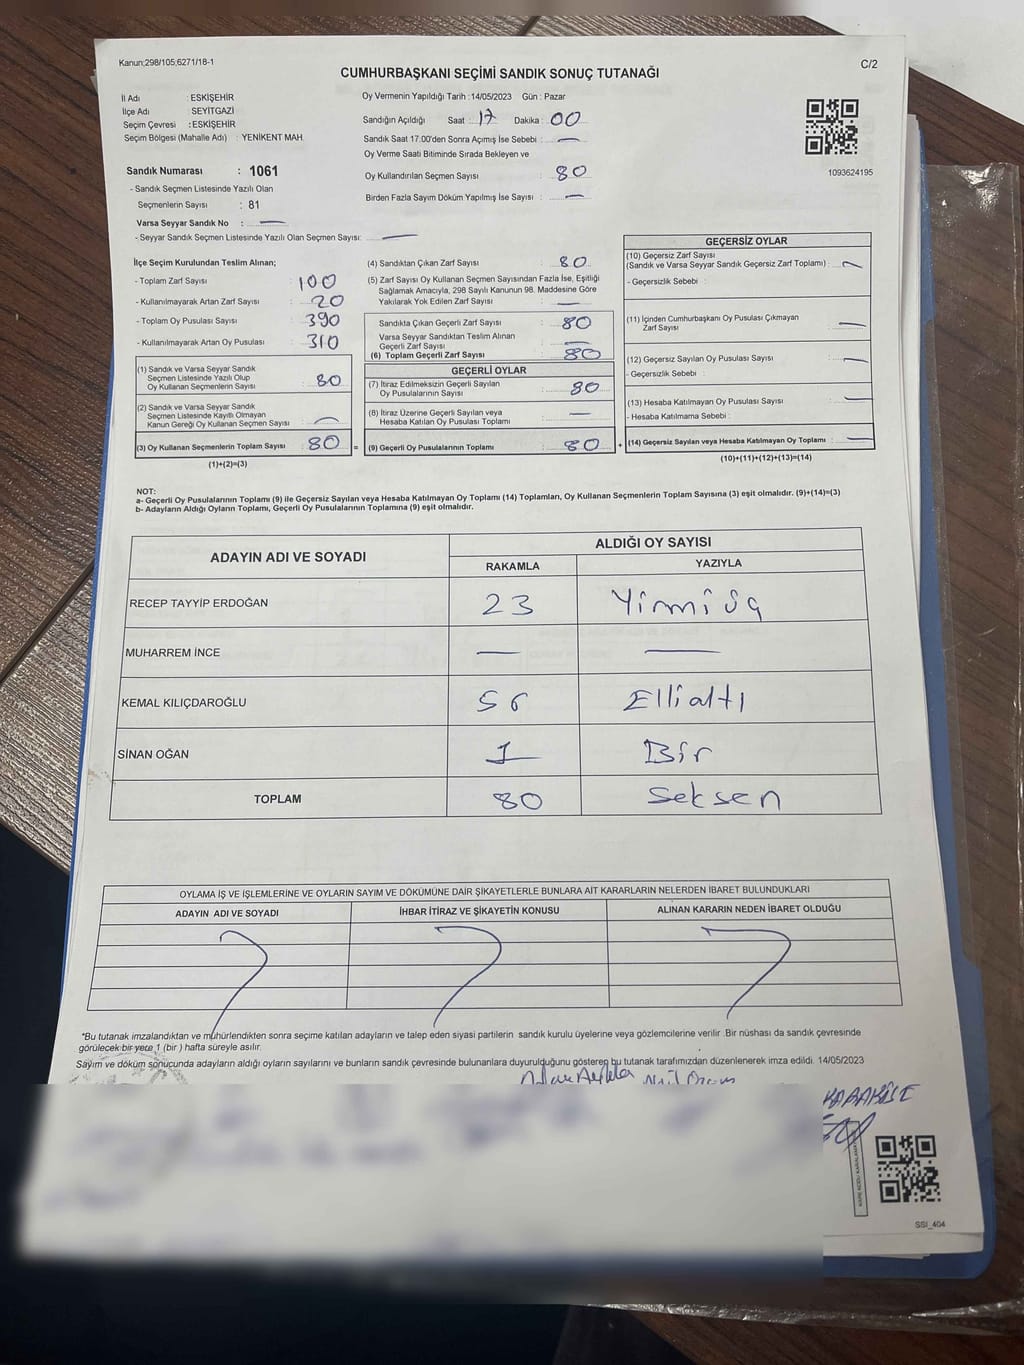 Kanun;298/105;6271/18-1
C/2
CUMHURBAŞKANI SEÇİMİ SANDIK SONUÇ TUTANAĞI
İl Adı : ESKİŞEHİR
İlçe Adı : SEYİTGAZİ
Seçim Çevresi : ESKİŞEHİR
Seçim Bölgesi (Mahalle Adı) : YENİKENT MAH.
Oy Vermenin Yapıldığı Tarih :14/05/2023 Gün : Pazar
Sandığın Açıldığı Saat : 17 Dakika : 00
Sandık Saat 17:00'den Sonra Açımış İse Sebebi : —
Oy Verme Saati Bitiminde Sırada Bekleyen ve
Oy Kullandırılan Seçmen Sayısı : 80
Birden Fazla Sayım Döküm Yapılmış İse Sayısı : —
1093624195
Sandık Numarası : 1061
- Sandık Seçmen Listesinde Yazılı Olan
Seçmenlerin Sayısı : 81
Varsa Seyyar Sandık No : —
- Seyyar Sandık Seçmen Listesinde Yazılı Olan Seçmen Sayısı: —
İlçe Seçim Kurulundan Teslim Alınan;
- Toplam Zarf Sayısı : 100
- Kullanılmayarak Artan Zarf Sayısı : 20
- Toplam Oy Pusulası Sayısı : 390
- Kullanılmayarak Artan Oy Pusulası : 310
(1) Sandık ve Varsa Seyyar Sandık
Seçmen Listesinde Yazılı Olup
Oy Kullanan Seçmenlerin Sayısı : 80
(2) Sandık ve Varsa Seyyar Sandık
Seçmen Listesinde Kayıtlı Olmayan
Kanun Gereği Oy Kullanan Seçmen Sayısı : —
(3) Oy Kullanan Seçmenlerin Toplam Sayısı : 80 =
(1)+(2)=(3)
(4) Sandıktan Çıkan Zarf Sayısı : 80
(5) Zarf Sayısı Oy Kullanan Seçmen Sayısından Fazla İse, Eşitliği
Sağlamak Amacıyla, 298 Sayılı Kanunun 98. Maddesine Göre
Yakılarak Yok Edilen Zarf Sayısı : —
Sandıkta Çıkan Geçerli Zarf Sayısı : 80
Varsa Seyyar Sandıktan Teslim Alınan
Geçerli Zarf Sayısı : —
(6) Toplam Geçerli Zarf Sayısı : 80
GEÇERLİ OYLAR
(7) İtiraz Edilmeksizin Geçerli Sayılan
Oy Pusulalarının Sayısı : 80
(8) İtiraz Üzerine Geçerli Sayılan veya
Hesaba Katılan Oy Pusulası Toplamı : —
(9) Geçerli Oy Pusulalarının Toplamı : 80 +
GEÇERSİZ OYLAR
(10) Geçersiz Zarf Sayısı
(Sandık ve Varsa Seyyar Sandık Geçersiz Zarf Toplamı) : —
- Geçersizlik Sebebi :
(11) İçinden Cumhurbaşkanı Oy Pusulası Çıkmayan
Zarf Sayısı : —
(12) Geçersiz Sayılan Oy Pusulası Sayısı : —
- Geçersizlik Sebebi :
(13) Hesaba Katılmayan Oy Pusulası Sayısı : —
- Hesaba Katılmama Sebebi :
(14) Geçersiz Sayılan veya Hesaba Katılmayan Oy Toplamı : —
(10)+(11)+(12)+(13)=(14)
NOT:
a- Geçerli Oy Pusulalarının Toplamı (9) ile Geçersiz Sayılan veya Hesaba Katılmayan Oy Toplamı (14) Toplamları, Oy Kullanan Seçmenlerin Toplam Sayısına (3) eşit olmalıdır. (9)+(14)=(3)
b- Adayların Aldığı Oyların Toplamı, Geçerli Oy Pusulalarının Toplamına (9) eşit olmalıdır.
ADAYIN ADI VE SOYADI ALDIĞI OY SAYISI
RAKAMLA YAZIYLA
RECEP TAYYİP ERDOĞAN 23 Yirmi üç
MUHARREM İNCE — —
KEMAL KILIÇDAROĞLU 56 Ellialtı
SİNAN OĞAN 1 Bir
TOPLAM 80 Seksen
OYLAMA İŞ VE İŞLEMLERİNE VE OYLARIN SAYIM VE DÖKÜMÜNE DAİR ŞİKAYETLERLE BUNLARA AİT KARARLARIN NELERDEN İBARET BULUNDUKLARI
ADAYIN ADI VE SOYADI İHBAR İTİRAZ VE ŞİKAYETİN KONUSU ALINAN KARARIN NEDEN İBARET OLDUĞU
*Bu tutanak imzalandıktan ve mühürlendikten sonra seçime katılan adayların ve talep eden siyasi partilerin sandık kurulu üyelerine veya gözlemcilerine verilir. Bir nüshası da sandık çevresinde
görülecek bir yere 1 (bir ) hafta süreyle asılır.
Sayım ve döküm sonucunda adayların aldığı oyların sayılarını ve bunların sandık çevresinde bulunanlara duyurulduğunu gösteren bu tutanak tarafımızdan düzenlenerek imza edildi. 14/05/2023
SSI_404